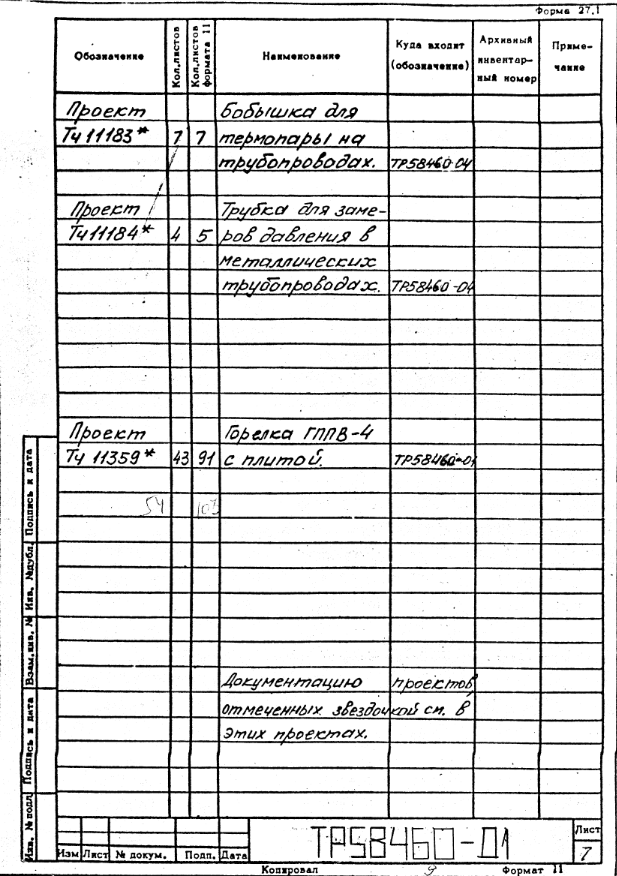 Форма 27.1
Обозначение Кол.листов Кол.листов формата 11 Наименование Куда входит (обозначение) Архивный инвентарный номер Примечание
Проект Бобышка для
ТЧ 11183* 7 7 термопары на
трубопроводах. ТР58460-04
Проект Трубка для заме-
ТЧ 11184* 4 5 ров давления в
металлических
трубопроводах. ТР58460-04
Проект Горелка ГППВ-4
ТЧ 11359* 43 91 с плитой. ТР58460-01
54
Документацию проектов,
отмеченных звездочкой см. в
этих проектах.
Инв. № подл Подпись и дата Взам.инв. № Инв. №дубл. Подпись и дата
ТР58460-01
Лист
7
Изм Лист № докум. Подп. Дата
Копировал 9 Формат 11